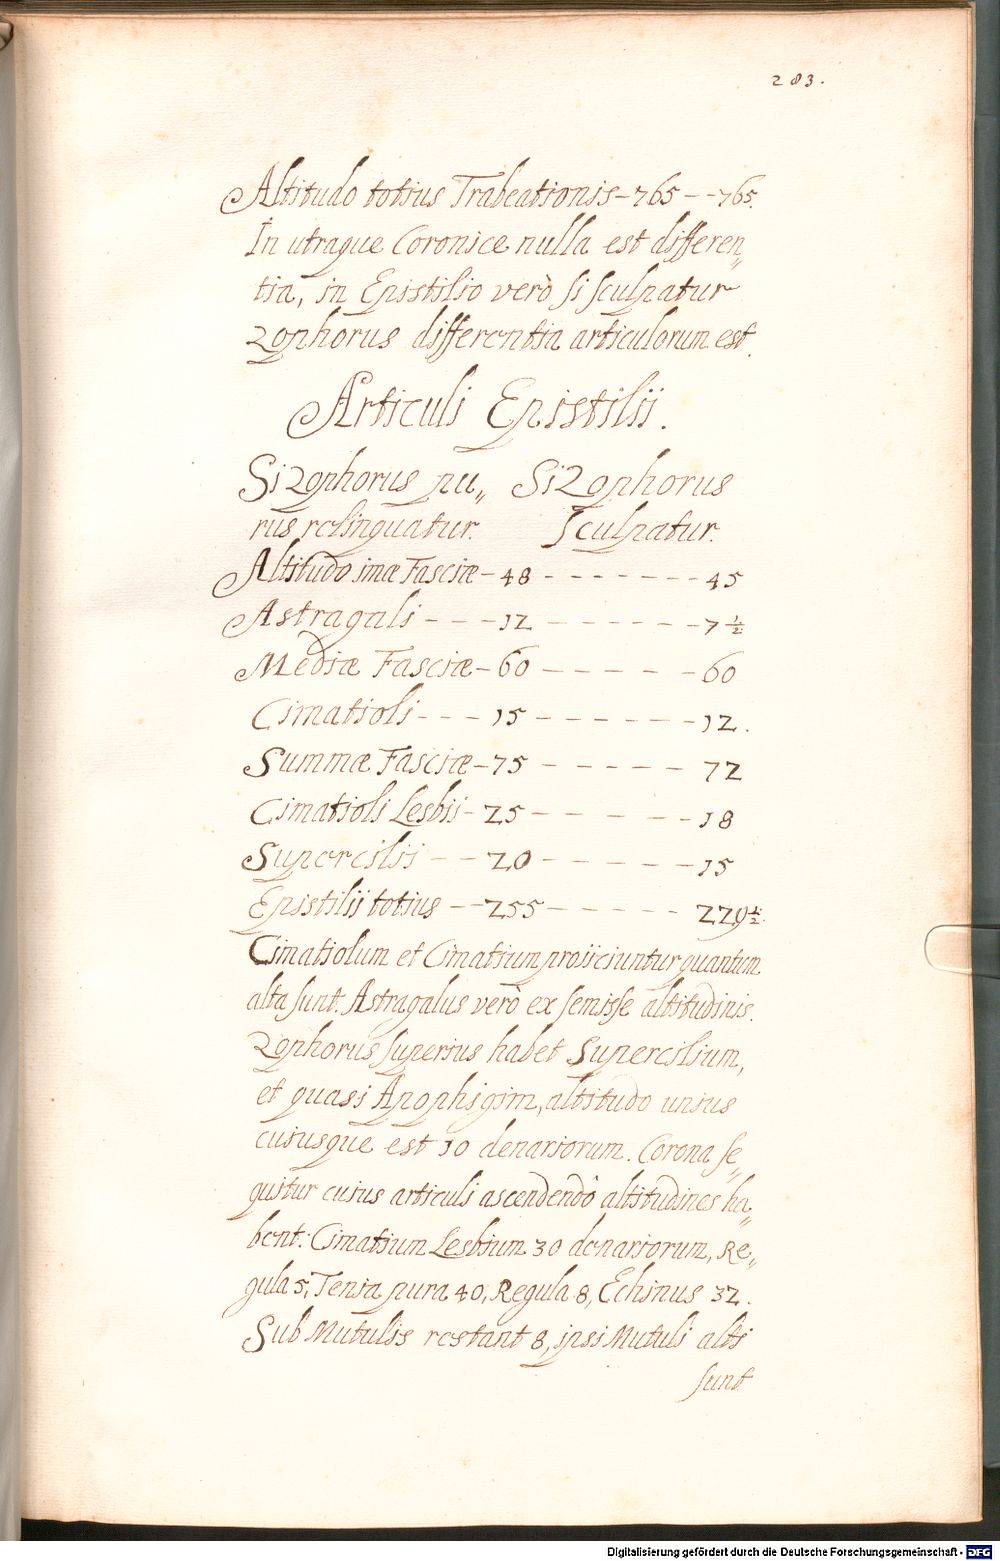 283.
Altitudo totius Trabeationis - 765 - - 765.
In utraque Coronice nulla est differen„
tia, in Epistilio verò si sculpatur
Zophorus differentia articulorum est.
Articuli Epistilii.
Si Zophorus pu„ Si Zophorus
rus relinquatur. Sculpatur.
Altitudo imæ Fasciæ - 48 - - - - - - - 45
Astragali - - - 12 - - - - - - 7 1/2
Mediæ Fasciæ - 60 - - - - - 60
Cimatioli - - - 15 - - - - - - 12.
Summæ Fasciæ - 75 - - - - - 72
Cimatioli Lesbii - 25 - - - - - 18
Supercilii - - 20 - - - - - - 15
Epistilii totius - - 255 - - - - - - 229 1/2.
Cimatiolum et Cimatium proiiciuntur quantum
alta sunt. Astragalus verò ex semisse altitudinis.
Zophorus superius habet Supercilium,
et quasi Apophigim, altitudo unius
cuiusque est 10 denariorum. Corona se„
quitur cuius articuli ascendendò altitudines ha„
bent: Cimatium Lesbium 30 denariorum, Re„
gula 5, Tenia pura 40, Regula 8, Echinus 32.
Sub Mutulis restant 8, ipsi Mutuli alti
sunt
Digitalisierung gefördert durch die Deutsche Forschungsgemeinschaft - DFG